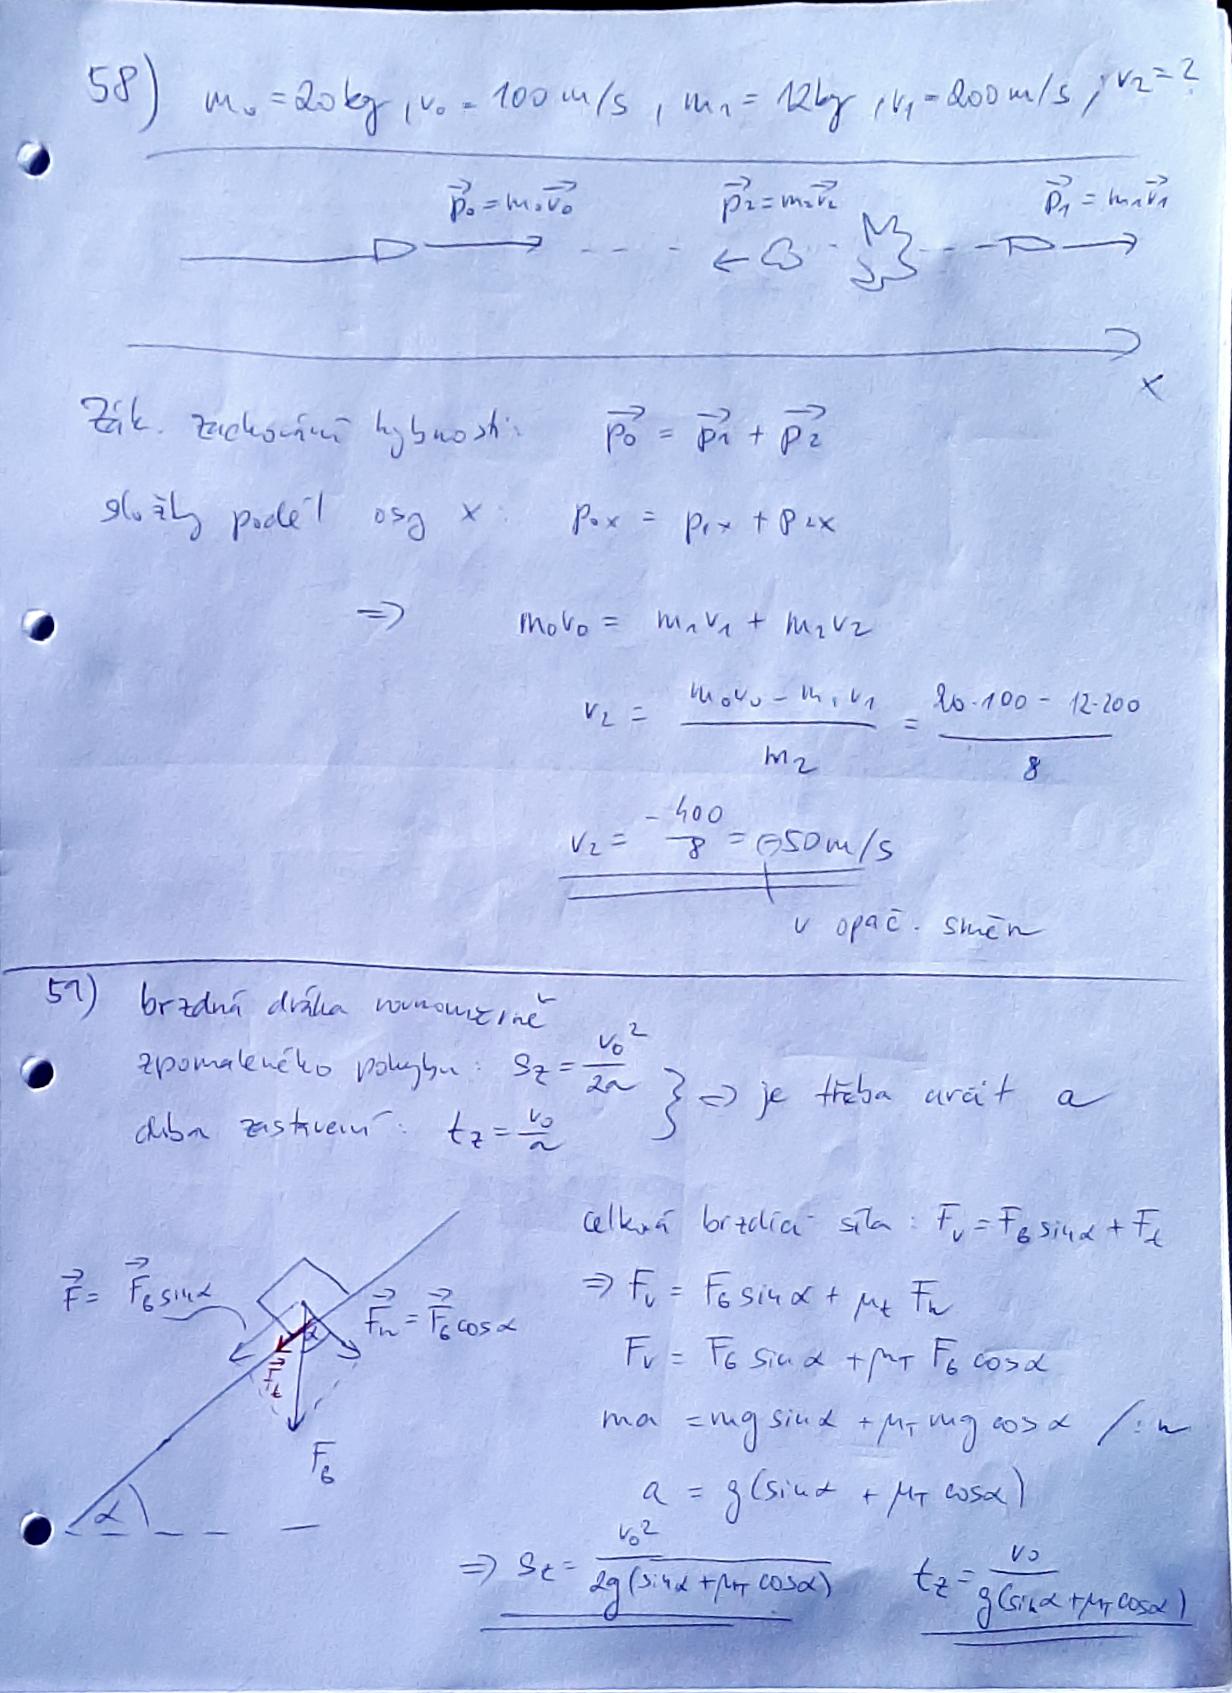 58) m₀ = 20 kg, v₀ = 100 m/s, m₁ = 12 kg, v₁ = 200 m/s; v₂ = ?
p⃗₀ = m₀v⃗₀ p⃗₂ = m₂v⃗₂ p⃗₁ = m₁v⃗₁
x
Zák. zachování hybnosti: p⃗₀ = p⃗₁ + p⃗₂
složky podél osy x: p₀ₓ = p₁ₓ + p₂ₓ
⇒ m₀v₀ = m₁v₁ + m₂v₂
v₂ = (m₀v₀ - m₁v₁)/m₂ = (20·100 - 12·200)/8
v₂ = -400/8 = -50 m/s
v opač. směru
59) brzdná dráha rovnoměrně
zpomaleného pohybu: s_z = v₀²/2a
doba zastavení: t_z = v₀/a } ⇒ je třeba určit a
celková brzdící síla: F_v = F_G sin α + F_t
F⃗ = F⃗_G sin α
F⃗_n = F⃗_G cos α
α
F⃗_t
F_G
α
⇒ F_v = F_G sin α + μ_t F_n
F_v = F_G sin α + μ_T F_G cos α
ma = mg sin α + μ_T mg cos α /: m
a = g(sin α + μ_T cos α)
⇒ s_z = v₀²/2g(sin α + μ_T cos α) t_z = v₀/g(sin α + μ_T cos α)